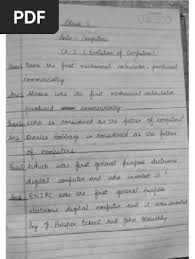 PDF
Class 5
Sub - Computer
Ch-2 (Evolution of Computers)
Name the first mechanical calculator, produced
commercially
Ans) Abacus was the first mechanical calculator
produced commercially.
Who is considered as the father of computer?
Ans) Charles Babbage is considered as the father
of computers
which was first general purpose electronic
digital computer and who invented it?
Ans) ENIAC was the first general purpose
electronic digital computer and it was invented
by J. Presper Eckert and John Mauchly